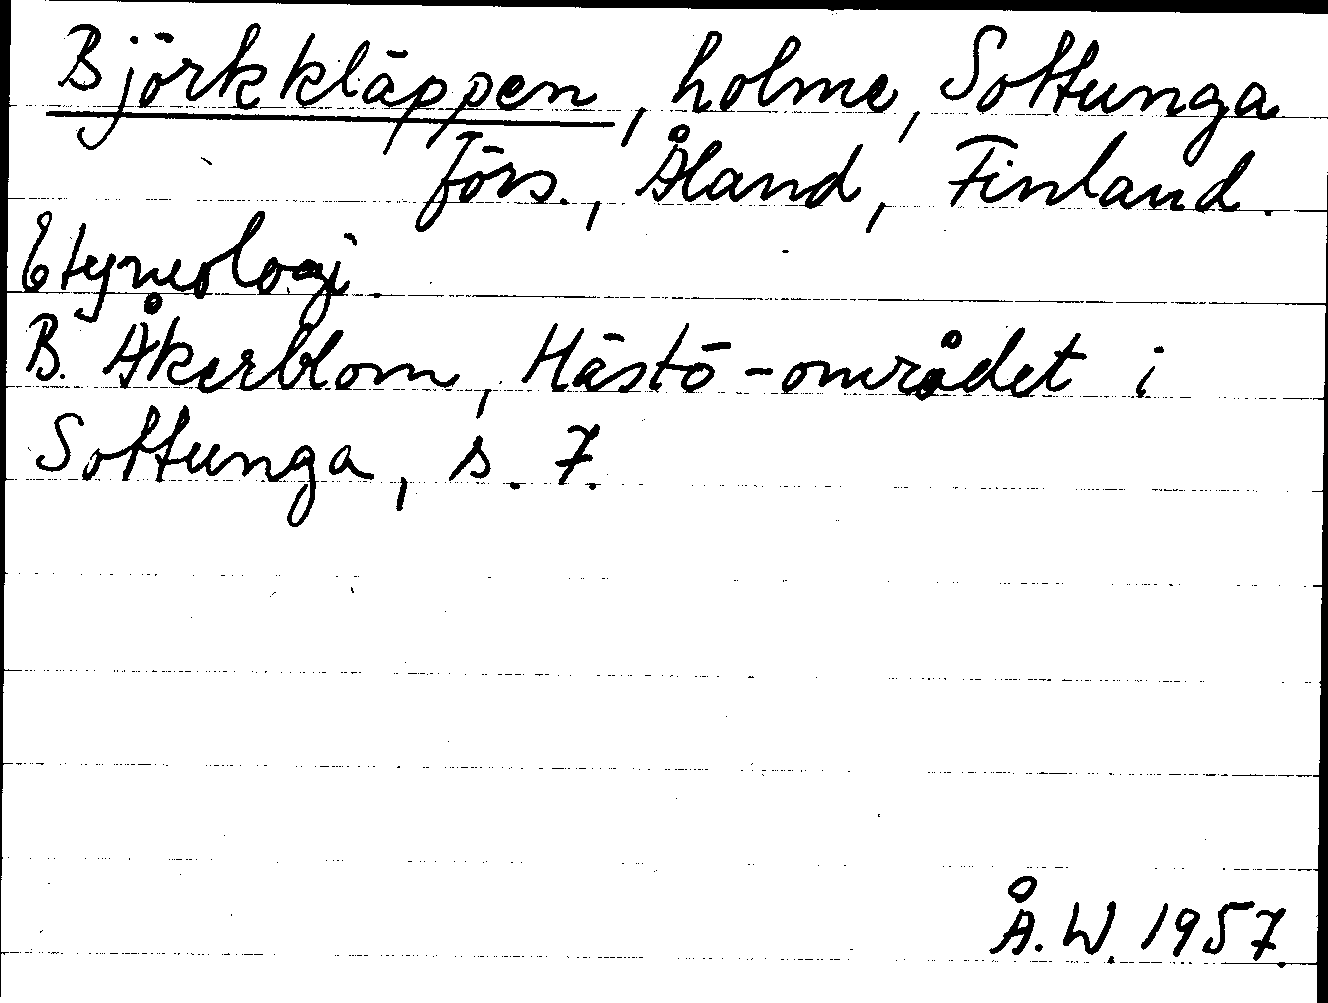 Björkkläppen, holme, Sottunga
förs., Åland, Finland.
Etymologi.
B. Åkerblom, Hästö-området i
Sottunga, s. 7.
Å.W. 1957.